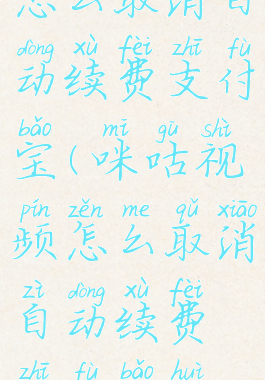 怎么取消自
dòng xù fèi zhī fù
动续费支付
bǎo mī gū shì
宝(咪咕视
pín zěn me qǔ xiāo
频怎么取消
zì dòng xù fèi
自动续费
zhī fù bǎo huì